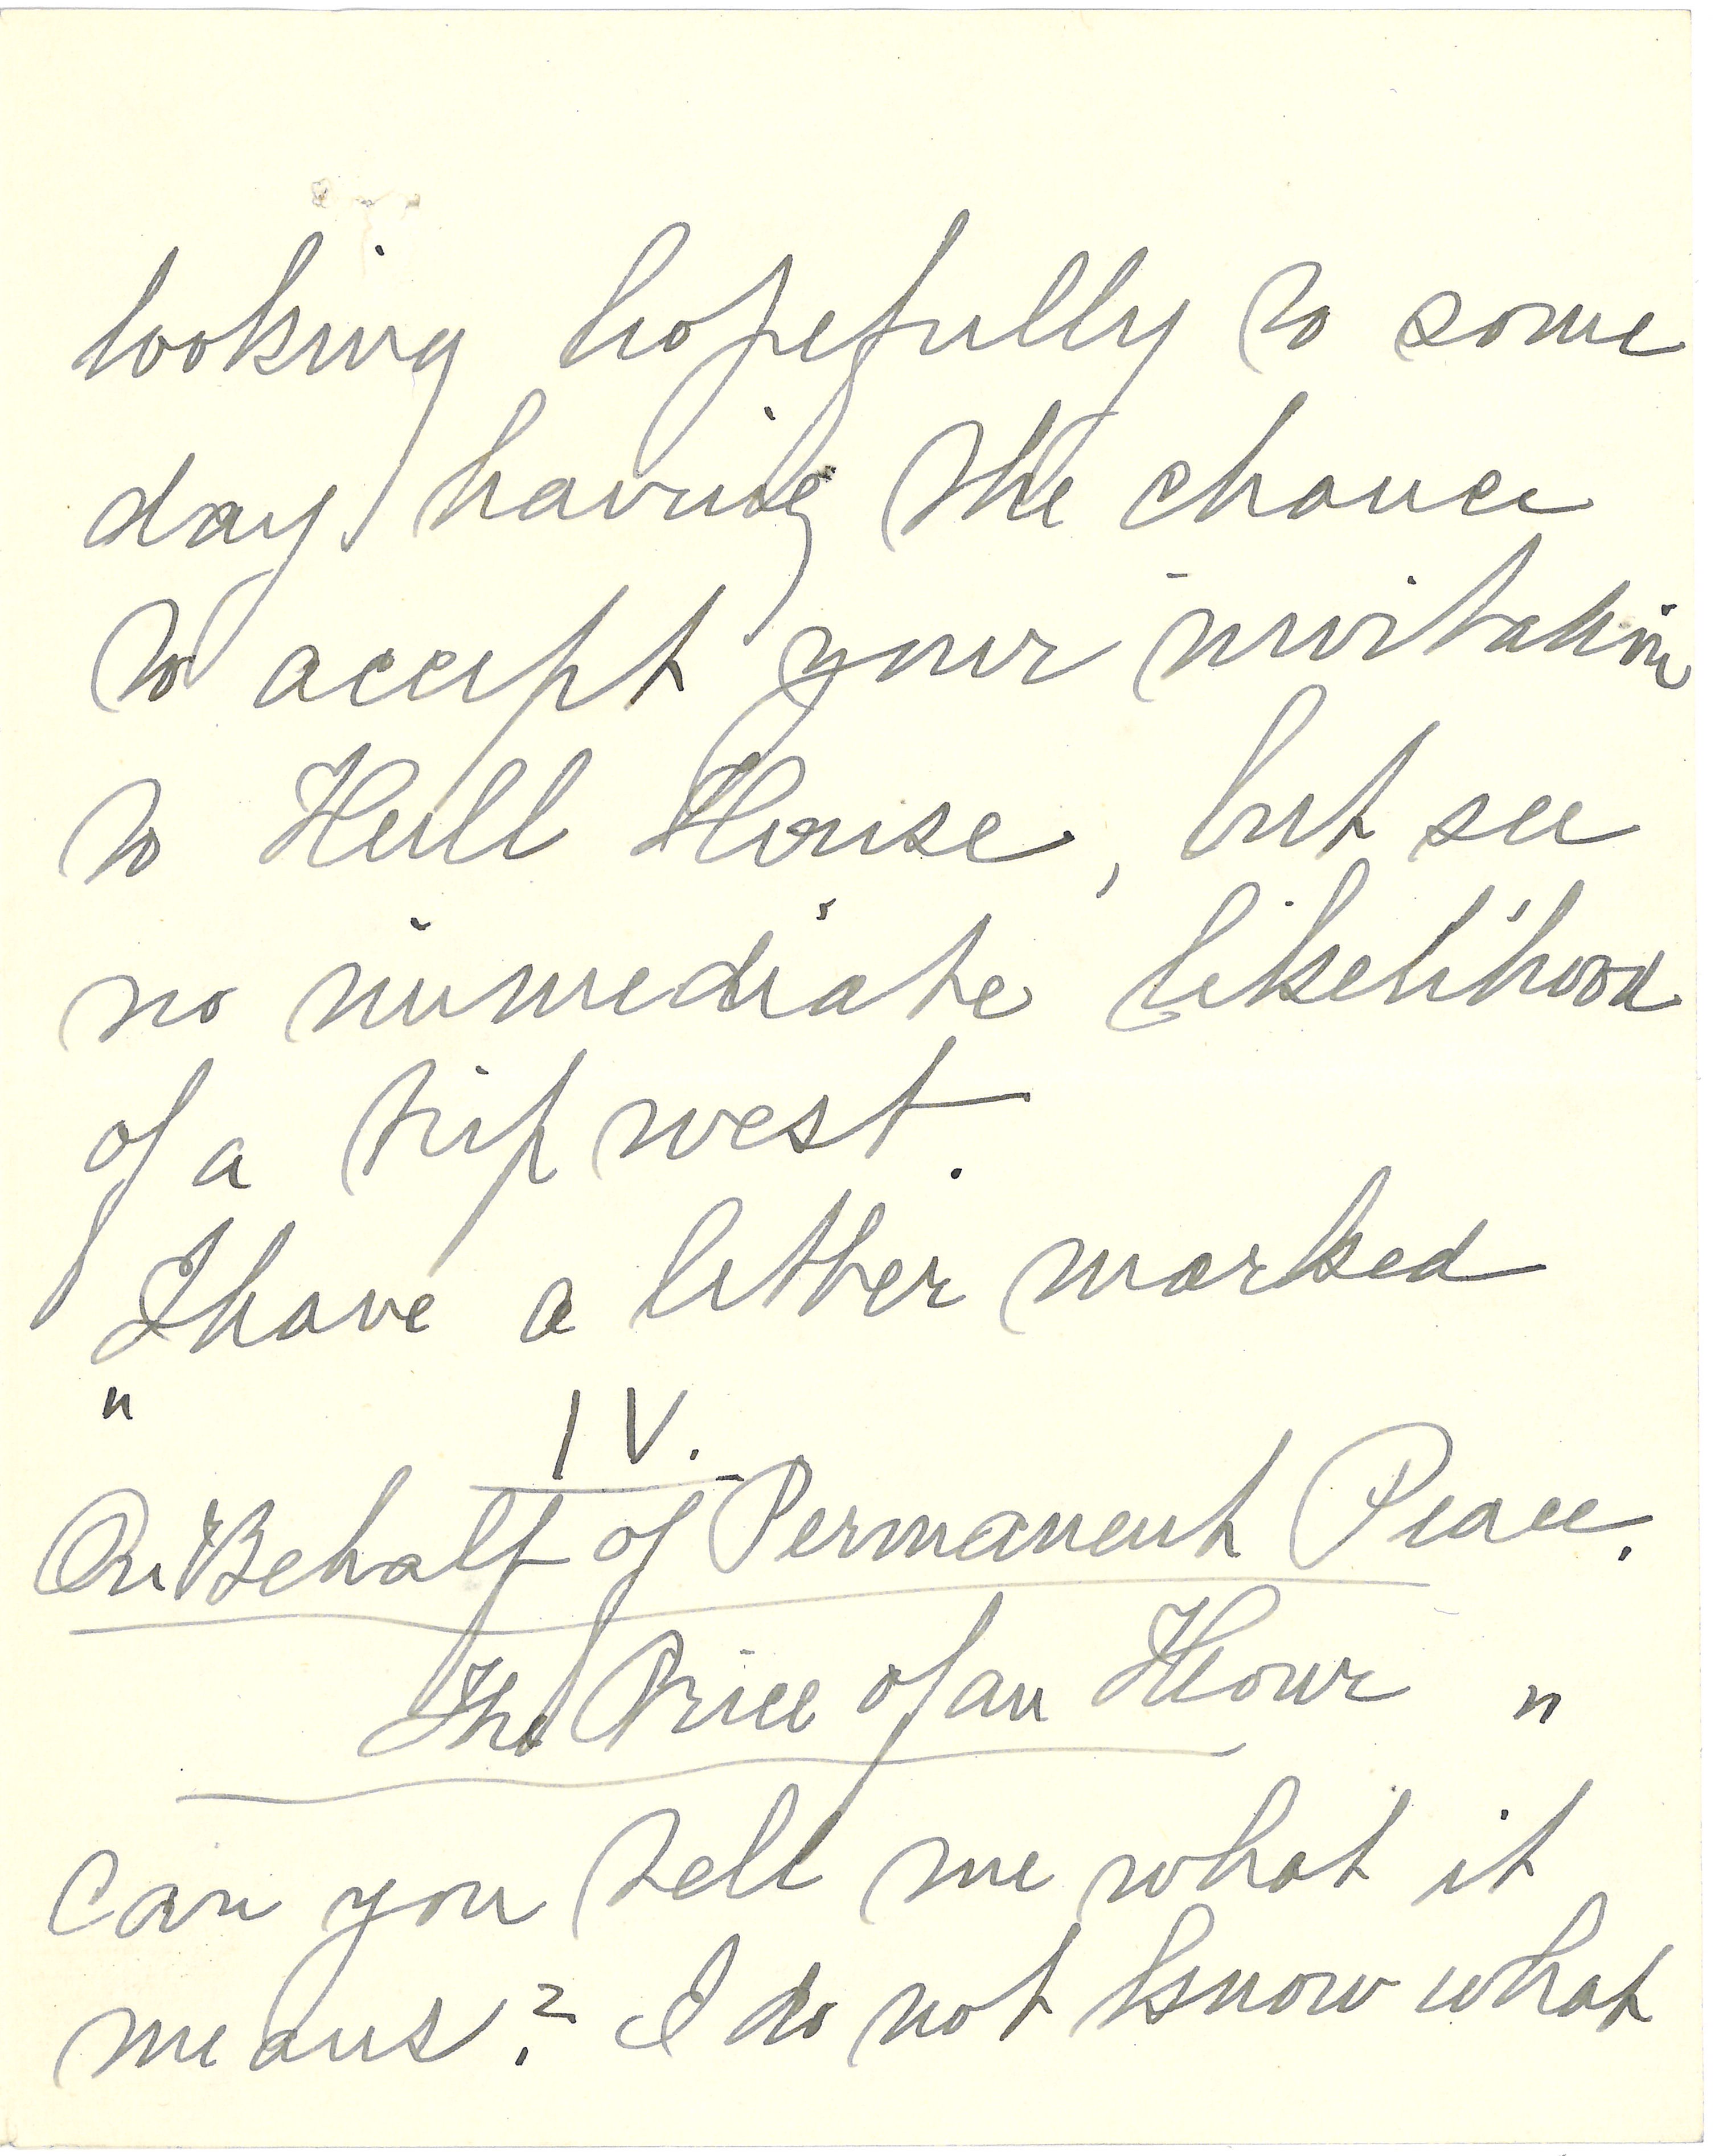 looking hopefully to some
day having the chance
to accept your invitation
to Hull House, but see
no immediate likelihood
of a trip west.
I have a letter marked
" IV.
On Behalf of Permanent Peace.
The Price of an Hour "
Can you tell me what it
means? I do not know what